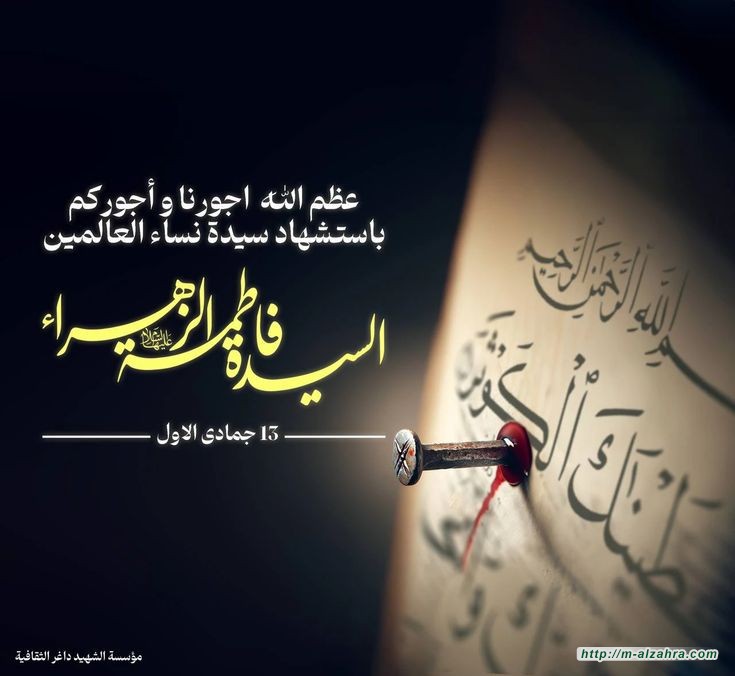 عظم الله اجورنا و أجوركم
باستشهاد سيدة نساء العالمين
السيدة فاطمة الزهراء
عليها السلام
13 جمادى الاول
الله الرحمن الرحيم
الكوثر
مؤسسة الشهيد داغر الثقافية
http://m-alzahra.com